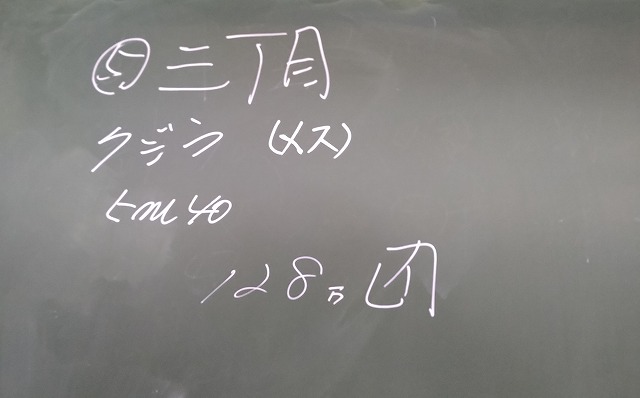 三丁目
クジラ (メス)
5m40
128万